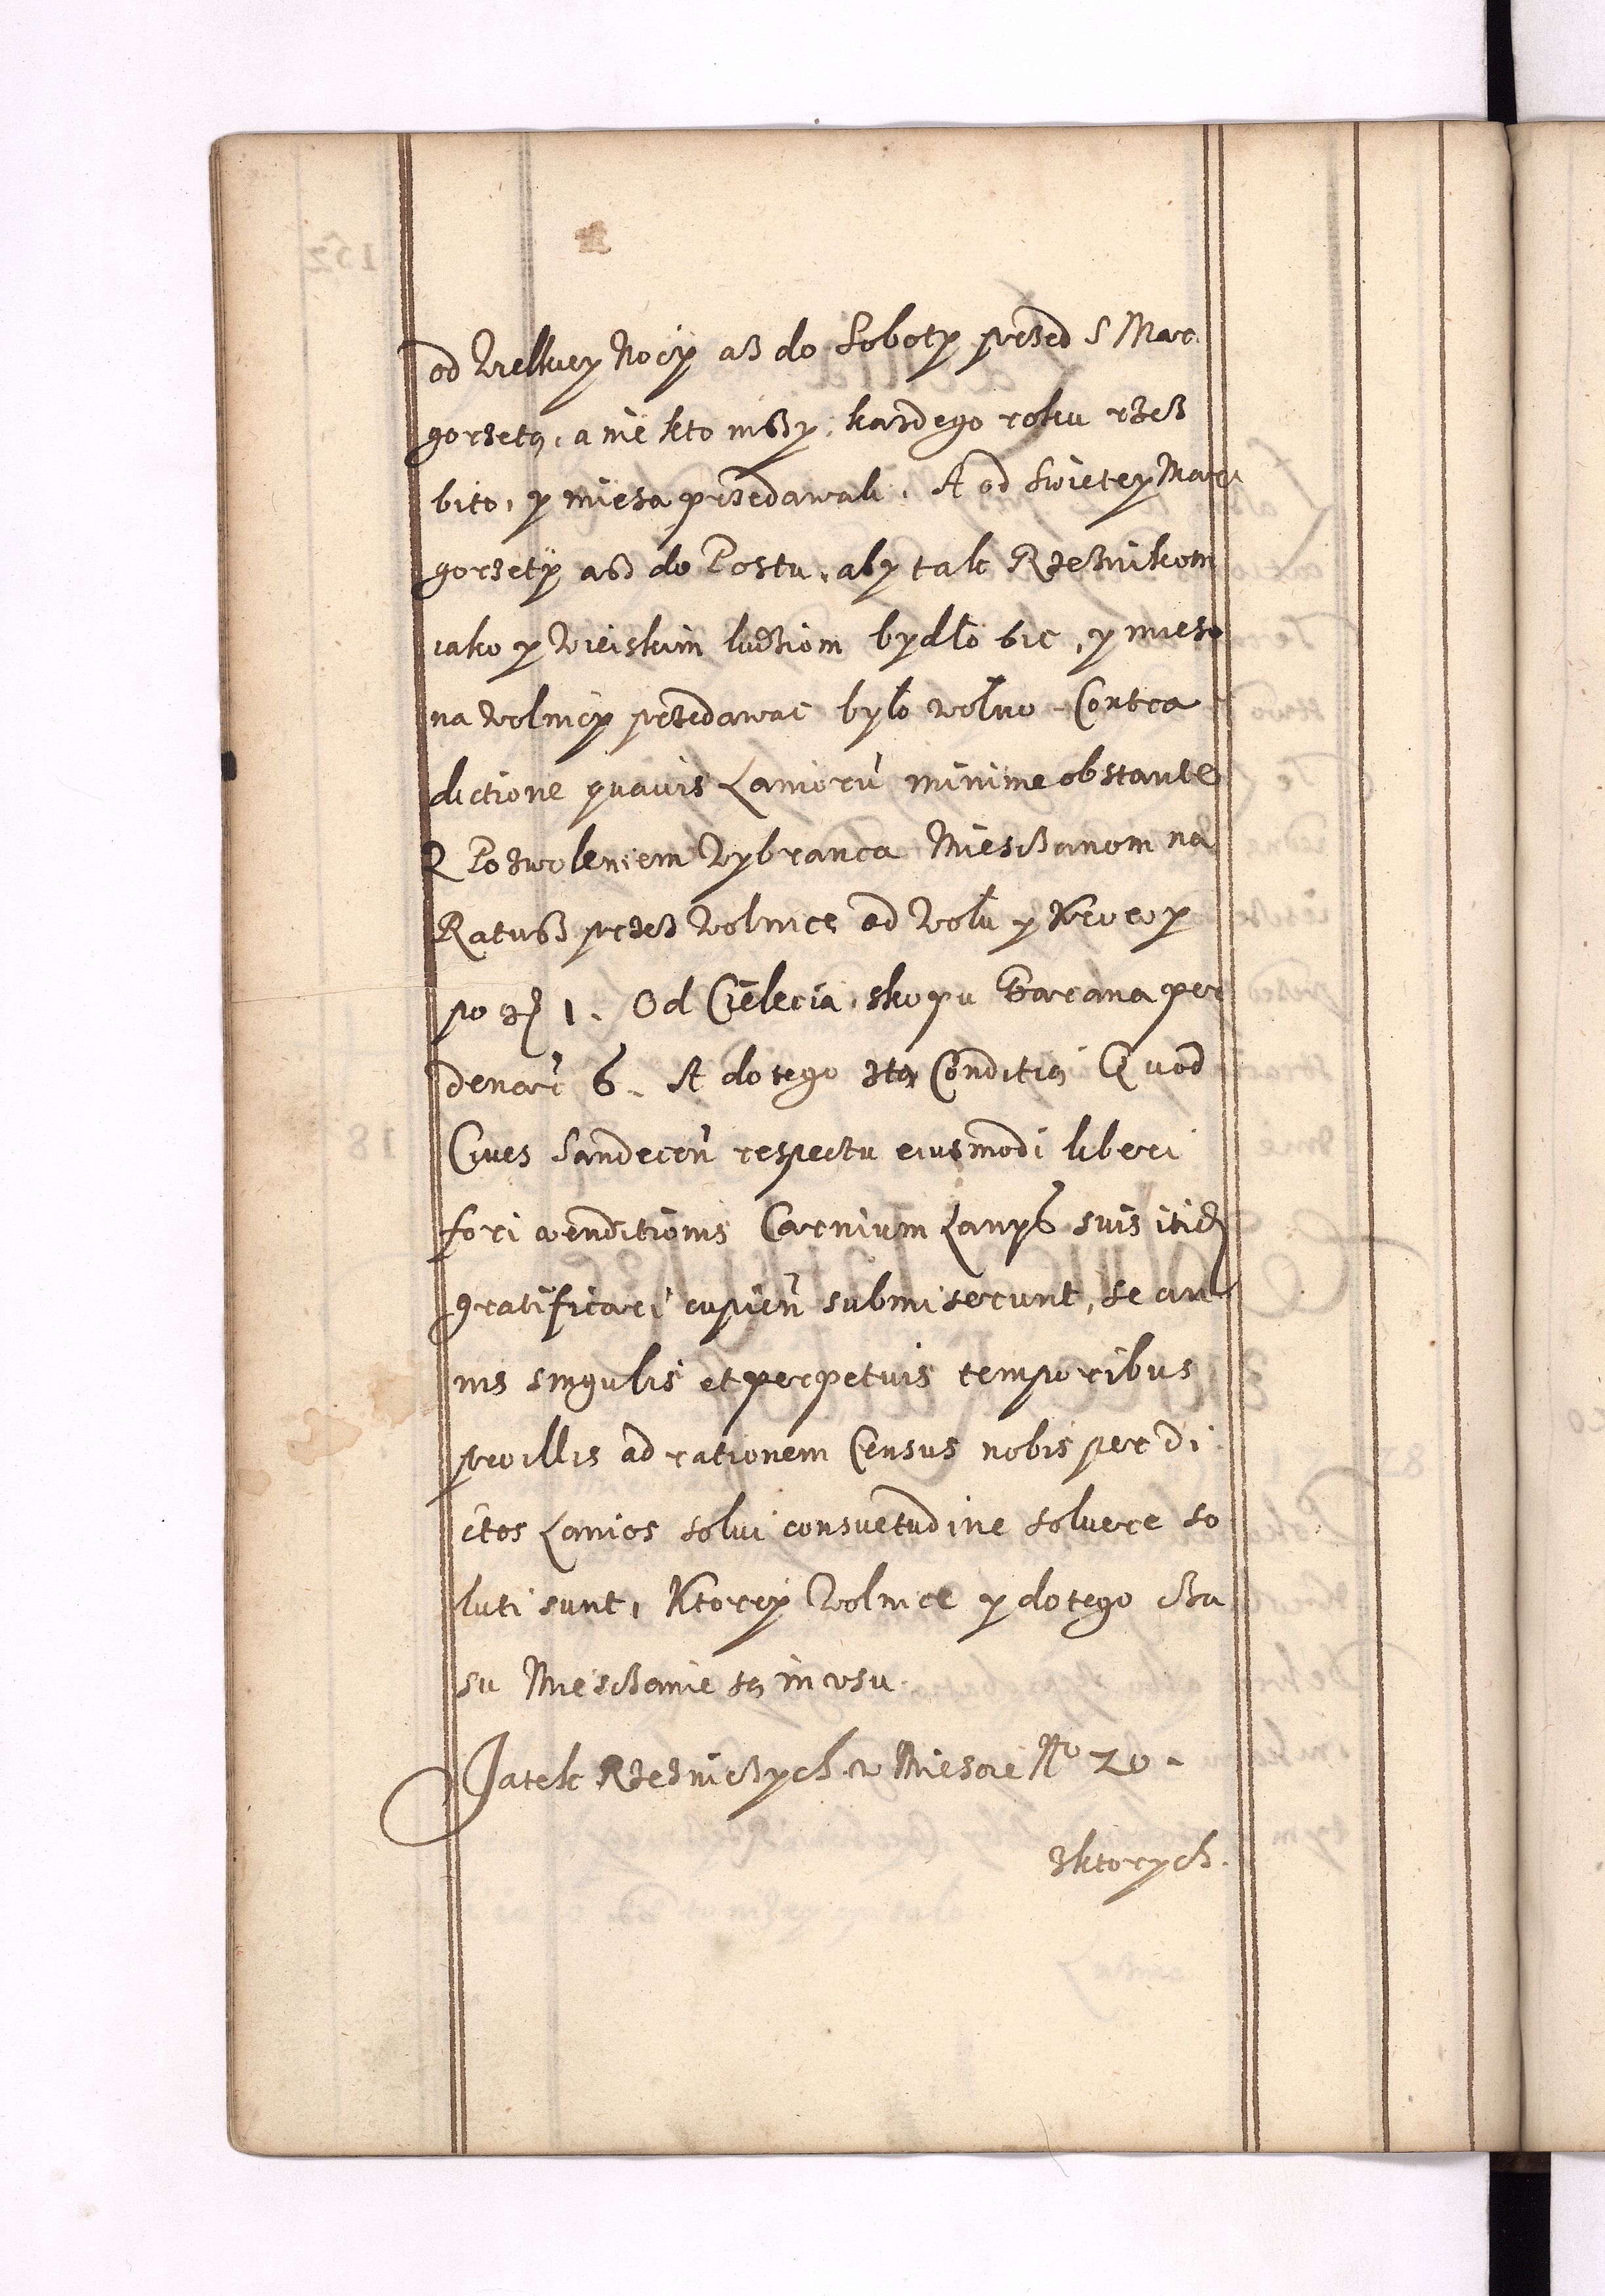 od Wielkiey Nocÿ asz do Soboty przed S Mar
gorzetą, a nie kto inszy, kazdego roku rzes
bito, y mięsa przedawali. A od Swiętey Mar
gorzetÿ asz do Postu, aby tak Rzeznikom
iako y Wieiskim ludziom bydło bic, y mieso
na Wolnicÿ przedawac było wolno Contra
dictione quavis Laniorũ minime obstante
Z Pozwoleniem Wybranca Miesczanom na
Ratusz przes Wolnice od Wołu y Krowy
po gͦ 1. Od Cielęcia, skopu Barana per
denar 6. A do tego zta Conditią Quod
Cives Sandecen̄ respectu eiusmodi liberi
fori venditionis Carnium Laniis suis itid
gratificari cupien̄ submiserunt, se an
nis singulis et perpetuis temporibus
pro illis ad rationem Census nobis per di
ctos Lanios solvi consuetudine soluere so
luti sunt, Ktorey Wolnice y do tego cza
su Miesczanie są in vsu.
Jatek Rzezniczych w Miescie No 20.
Zktorych.